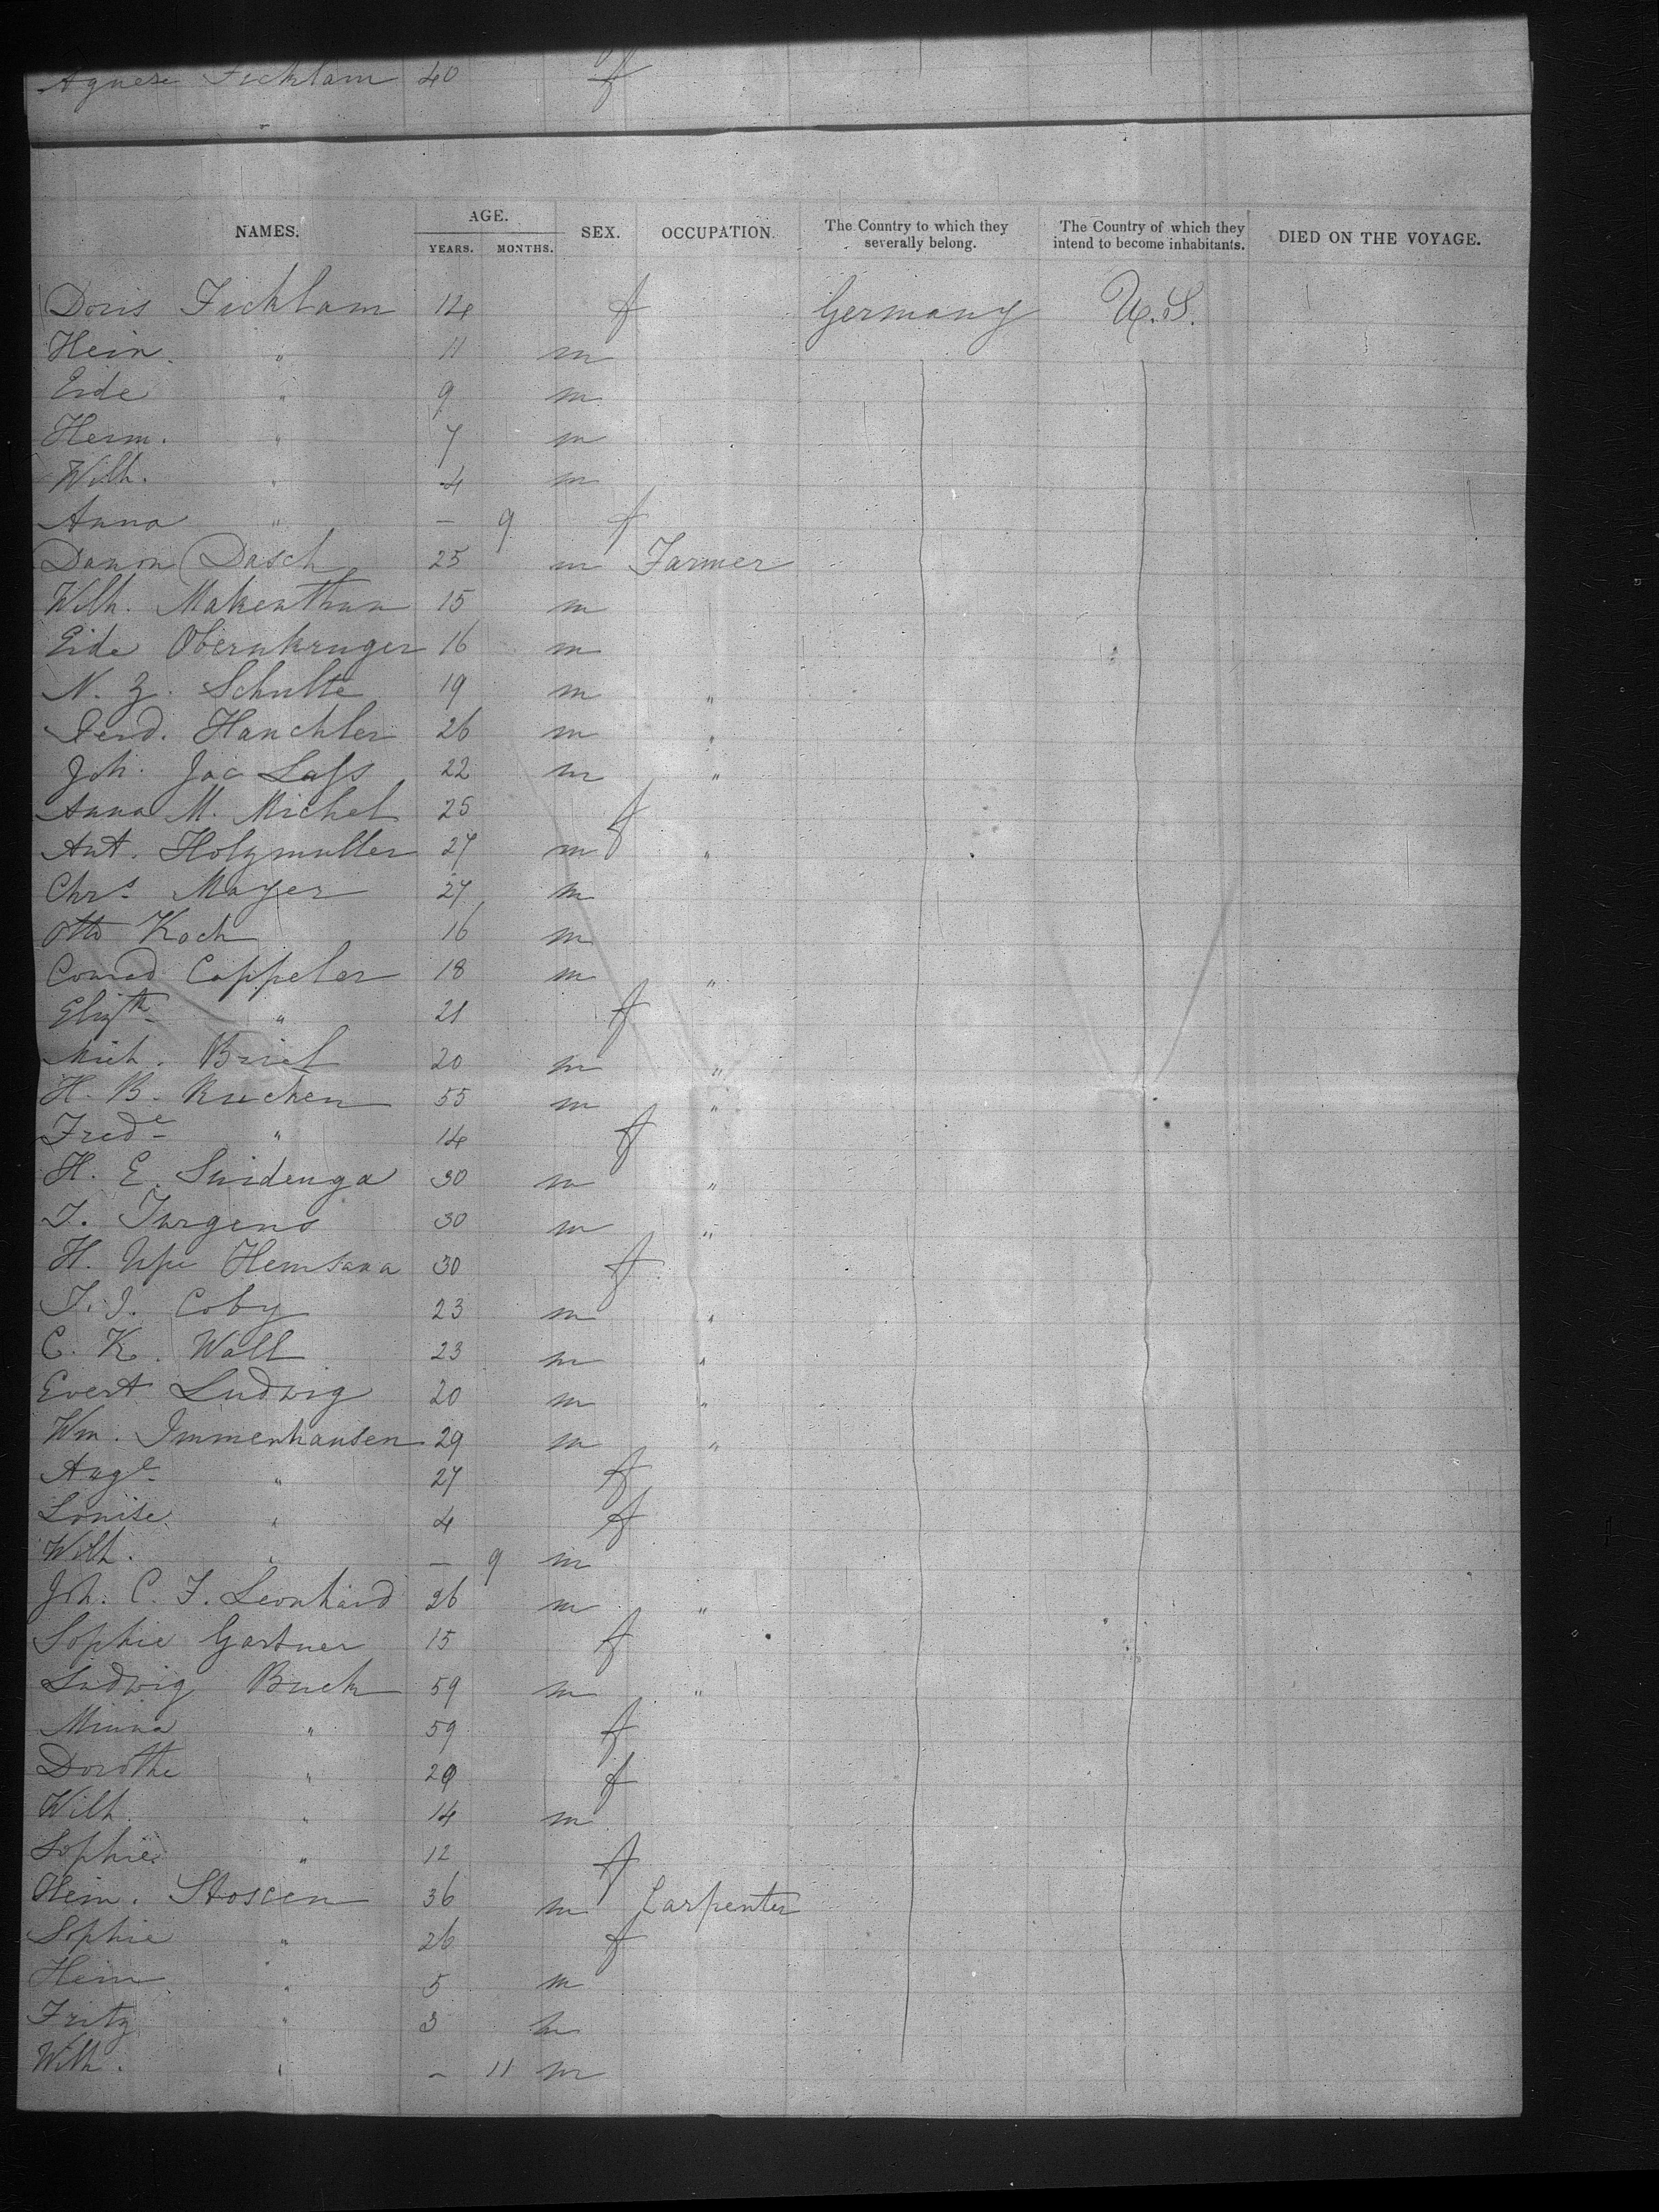 Agnese Ficklam 40 f
NAMES. AGE. YEARS. MONTHS. SEX. OCCUPATION. The Country to which they severally belong. The Country of which they intend to become inhabitants. DIED ON THE VOYAGE.
Doris Ficklam 14 f Germany U.S.
Hein. " 11 m
Eide " 9 m
Herm. " 7 m
Wilh. " 4 m
Anna " – 9 f
Danon Dasch 25 m Farmer
Wilh. Makenthun 15 m
Eide Obernkruger 16 m
N. Z. Schulte 19 m "
Ferd. Hanchler 26 m "
Joh. Jac Lass 22 m "
Anna M. Michel 25 f
Ant. Holzmuller 27 m "
Chrs. Mayer 27 m
Otto Koch 16 m
Conrad Cappeler 18 m "
Elizth " 21 f
Mich. Briel 20 m "
H. B. Kuchen 55 m "
Frede " 14 f
H. E. Smidenga 30 m "
T. Jurgens 30 m "
H. Hemsana 30 f
T. J. Coby 23 m "
C. K. Wall 23 m "
Evert Ludwig 20 m "
Wm. Immenhausen 29 m "
Auge " 27 f
Louise " 4 f
Wilh. " – 9 m
Joh. C. F. Leonhard 26 m "
Sophie Gartner 15 f
Ludwig Buck 59 m "
Minna " 59 f
Dorothe " 29 f
Wilh. " 14 m
Sophie " 12 f
Hein. Stoscen 36 m Carpenter
Sophie " 26 f
Hein " 5 m
Fritz " 3 m
Wilh. " – 11 m